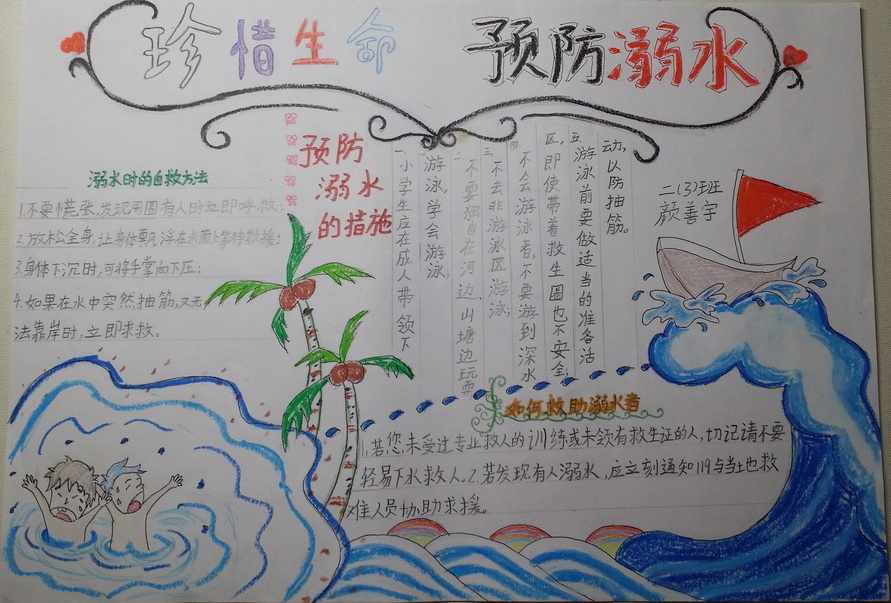 珍惜生命 预防溺水
溺水时的自救方法
1.不要慌张,发现周围有人时立即呼救;
2.放松全身,让身体飘浮在水面上等待救援;
3.身体下沉时,可将手掌向下压;
4.如果在水中突然抽筋,又无
法靠岸时,立即求救。
预防
溺水
的措施
一、小学生应在成人带领下
游泳,学会游泳,
二、不要独自在河边、山塘边玩耍
三、不去非游泳区游泳;
四、不会游泳者,不要游到深水
区,即使带着救生圈也不安全;
五、游泳前要做适当的准备活
动,以防抽筋。
二(3)班
颜善宇
如何救助溺水者
1.若您,未受过专业救人的训练或未领有救生证的人,切记请不要
轻易下水救人。2.若发现有人溺水,应立刻通知119与当地救
难人员协助求援。